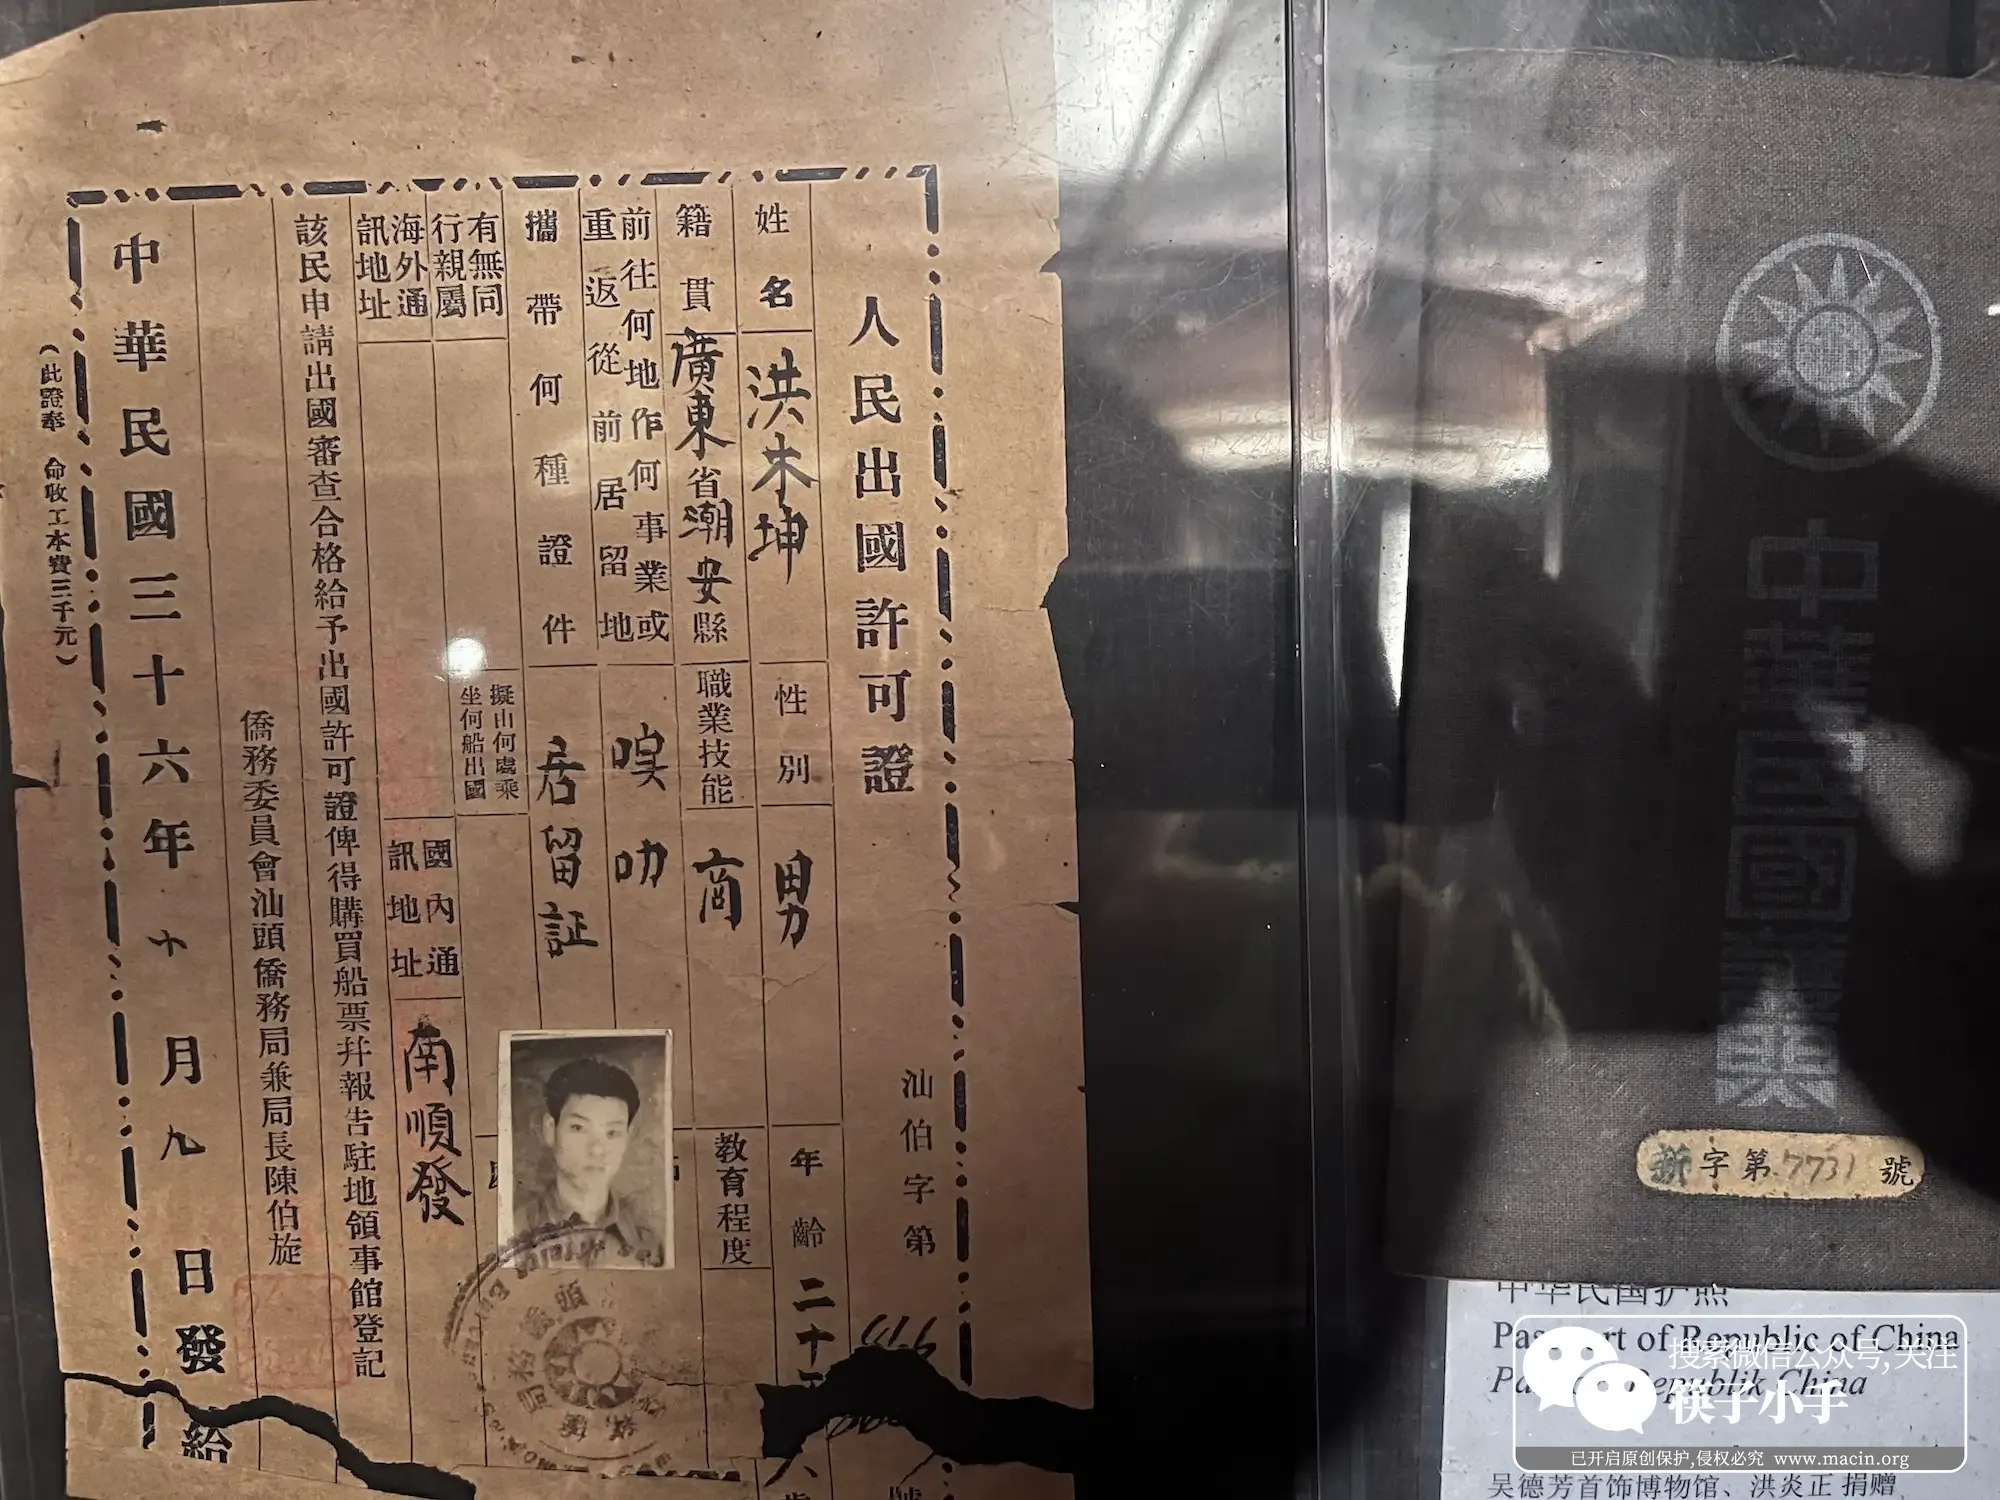 人民出國許可證
汕伯字第
號
姓名
洪木坤
性別
男
年齡
二十
籍貫
廣東省潮安縣
職業技能
商
教育程度
前往何地作何事業或
重返從前居留地
叻
攜帶何種證件
居留証
有無同
行親屬
擬由何處乘
坐何船出國
海外通
訊地址
國內通
訊地址
南順發
該民申請出國審查合格給予出國許可證俾得購買船票幷報告駐地領事館登記
僑務委員會汕頭僑務局兼局長陳伯旋
中華民國三十六年十月九日發給
（此證奉 命收工本費三千元）
中華民國護照
新字第7731號
中华民国护照
Passport of Republic of China
Republik China
吴德芳首饰博物馆、洪炎正 捐赠
搜索微信公众号,关注
筷子小手
已开启原创保护,侵权必究 www.macin.org